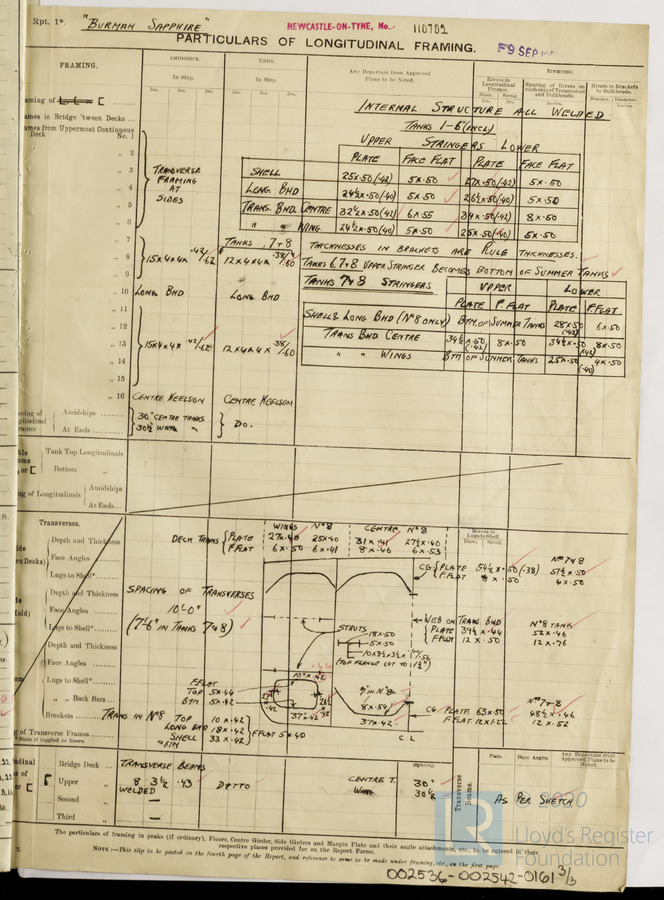 Rpt. 1*. "BURMAH SAPPHIRE" NEWCASTLE-ON-TYNE, No. 110702
PARTICULARS OF LONGITUDINAL FRAMING. F9 SEP
FRAMING. AMIDSHIPS. ENDS. Any Departure from Approved Plans to be Noted. RIVETING.
In Ship. In Ship. Rivets in Longitudinal Frames. Spacing of Rivets on each side of Transverses and Bulkheads. Rivets in Brackets to Bulkheads.
Ins. Ins. Ins. Ins. Ins. Ins. Diam. Spcng. Inches. Number. Diameter.
INTERNAL STRUCTURE ALL WELDED
TANKS 1-6 (INCL)
UPPER STRINGERS LOWER
PLATE FACE FLAT PLATE FACE FLAT
SHELL 25x50(.42) 5x.50 27x.50(.42) 5x.50
LONG. BHD 24½x.50(.40) 5x.50 26½x.50(.40) 5x.50
TRANS. BHD. CENTRE 32½x.50(.42) 6x.55 34x.50(.42) 8x.50
" " WING 24½x.50(.40) 5x.50 25x.50(.40) 5x.50
ames in Bridge 'tween Decks ...
ames from Uppermost Continuous Deck No. 1
" 2
" 3
" 4
" 5
" 6
TRANSVERSE FRAMING AT SIDES
" 7
" 8
" 9
15x4x4x .42/.62 TANKS, 7+8 12x4x4x .38/.60
THICKNESSES IN BRACKETS ARE RULE THICKNESSES.
TANKS 6,7+8 UPPER STRINGER BECOMES BOTTOM OF SUMMER TANKS
TANKS 7+8 STRINGERS UPPER LOWER
PLATE F. FLAT PLATE F.FLAT
SHELL & LONG BHD (No 8 ONLY) BTM. OF SUMMER TANKS 28x.50 (.42) 6x.50
TRANS BHD CENTRE 34½x.50 (.42) 8x.50 34½x.50 (.42) 8x.50
" " WINGS BTM OF SUMMER TANKS 25x.50 (.40) 4x.50
" 10 LONG BHD LONG. BHD
" 11
" 12
" 13 15x4x4x .42/.62 12x4x4x .38/.60
" 14
" 15
" 16 CENTRE KEELSON CENTRE KEELSON
Amidships ......... 30" CENTRE TANKS
At Ends ... 30½ WING " } DO.
Tank Top Longitudinals
Bottom "
ng of Longitudinals { Amidships
At Ends...
Transverses.
DECK TRANS { PLATE F.FLAT
WINGS No 8 CENTRE No 8
27x.40 25x40 31x.41 27½x.40
6x.50 6x.41 8x.46 6x.53
Rivets in Lugs to Shell
Diam. Spcng.
Depth and Thickness
Face Angles ...
Lugs to Shell*......
CG { PLATE 54½x.50 (.38)
F.FLAT x.50
No 7+8
51½.50
6x.50
Depth and Thickness
Face Angles ...
Lugs to Shell*......
SPACING OF TRANSVERSES
10'-0"
(7'-6" IN TANKS 7+8)
WEB ON TRANS. BHD
PLATE 34½x.44
F FLAT 12x.50
No 8 TANK
52x.46
12x.76
STRUTS
18x50
5x50
10x3½x3½x
(TOP FLANGE CUT TO 1½")
Depth and Thickness
Face Angles ...
Lugs to Shell*......
" " Back Bars ..
Brackets .........
10"x.42
F FLAT
TOP 5x.44
BTM 5x.42
27" .42 26½ x .42
37x.42
IN No 8
8x.54
37x.42
C L
CG PLATE 63x.50
F FLAT 12x1.22
No 7+8
48½x.46
12x.52
TRANS IN No 8 TOP 10x.42
LONG BHD 18x.42
SHELL 33x.42 } F FLAT 5x40
" BTM
g of Transverse Frames ...
* State if joggled or liners.
Bridge Deck ...
Upper "
Second "
Third "
TRANSVERSE BEAMS
8 3½ .43 DITTO
WELDED
SPACING
CENTRE T. 30"
WING 30½
Transverse Beams.
Plate. Face Angles. Any Departure from Approved Plans to be Noted.
AS PER SKETCH
© 2020
Lloyd's Register
Foundation
The particulars of framing in peaks (if ordinary), Floors, Centre Girder, Side Girders and Margin Plate and their angle attachments, etc., to be entered in their
respective places provided for on the Report Forms.
NOTE :—This slip to be pasted on the fourth page of the Report, and reference to same to be made under framing, etc., on the first page.
002536-002542-0161 3/3